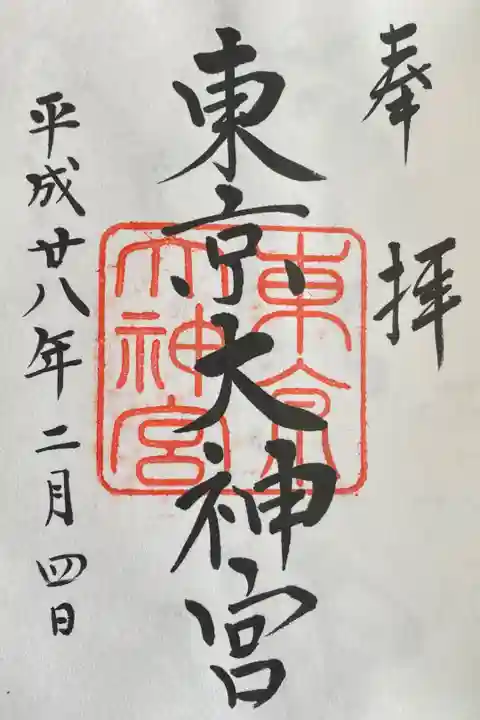 奉拝
東京大神宮
東京
大神宮
平成廿八年二月四日